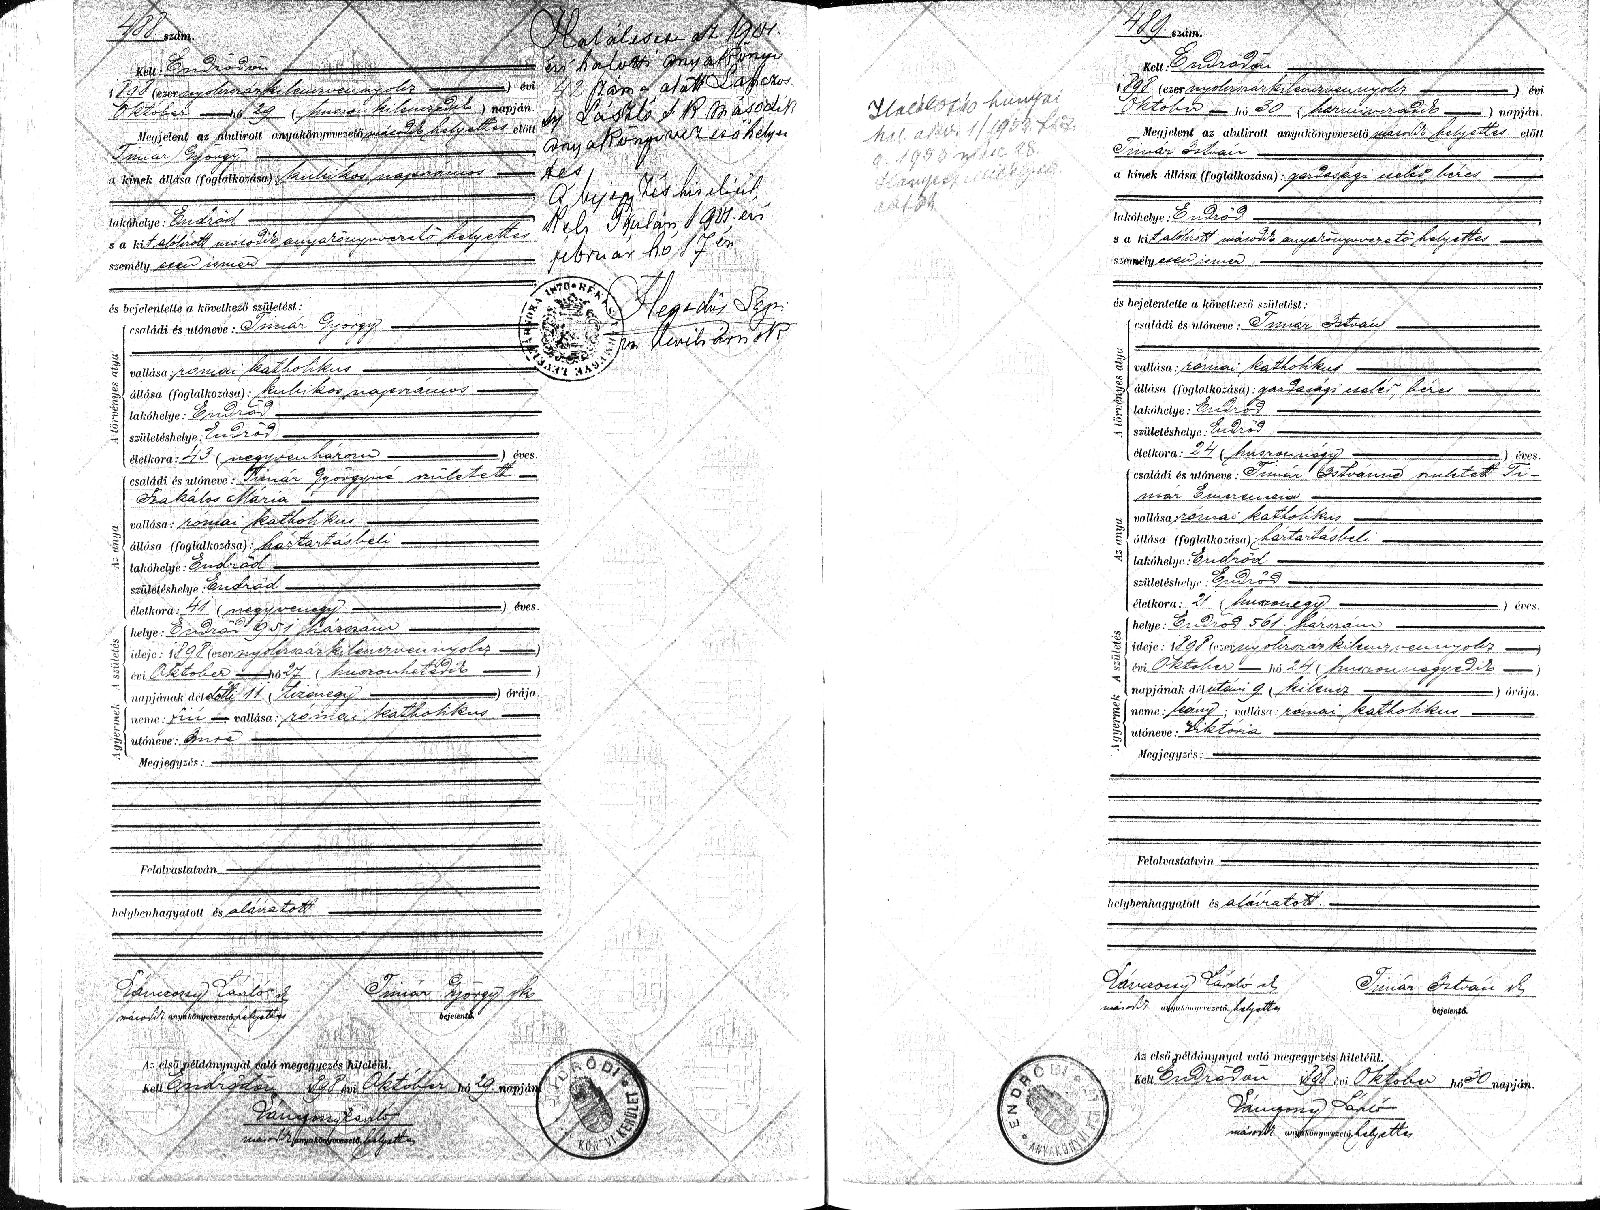 488 szám.
Kelt: Endrődön
1898 (ezernyolczszázkilenczvennyolcz) évi
Október hó 29 (huszonkilenczedik) napján.
Megjelent az alulirott anyakönyvvezető második helyettes előtt
Timár György
a kinek állása (foglalkozása): kubikos napszámos
lakóhelye: Endrőd
s a kit alólirott második anyakönyvvezető helyettes
személyesen ismer
és bejelentette a következő születést:
A törvényes atya
családi és utóneve: Timár György
vallása: római katholikus
állása (foglalkozása): kubikos napszámos
lakóhelye: Endrőd
születéshelye: Endrőd
életkora: 43 (negyvenhárom) éves.
Az anya
családi és utóneve: Timár Györgyné született
Szakálos Mária
vallása: római katholikus
állása (foglalkozása): háztartásbeli
lakóhelye: Endrőd
születéshelye: Endrőd
életkora: 41 (negyvenegy) éves.
A születés
helye: Endrőd 951 házszám
ideje: 1898 (ezernyolczszázkilenczvennyolcz)
évi Október hó 27 (huszonhetedik)
napjának délelőtti 11 (tizenegy) órája.
A gyermek
neme: fiu vallása: római katholikus
utóneve: Imre
Megjegyzés:
Felolvastatván
helybenhagyatott és aláiratott
László Timár György sk
második anyakönyvvezető helyettes bejelentő.
Az első példánynyal való megegyezés hiteléül.
Kelt Endrődön 1898 évi Október hó 29 napján.
László
második anyakönyvvezető helyettes
Halálesete az 1901.
évi halotti anyakönyv
42 szám alatt
László s. k. második
anyakönyvvezető helyet-
tes
A bejegyzés hiteléül
Kelt Gyulán, 1901. évi
február hó 17 én
Hegedűs
ENDRŐDI ANYAKÖNYVI KERÜLET
489 szám.
Kelt: Endrődön
1898 (ezernyolczszázkilenczvennyolcz) évi
Október hó 30 (harminczadik) napján.
Megjelent az alulirott anyakönyvvezető második helyettes előtt
Timár István
a kinek állása (foglalkozása): gazdasági cseléd, béres
lakóhelye: Endrőd
s a kit alólirott második anyakönyvvezető helyettes
személyesen ismer
és bejelentette a következő születést:
A törvényes atya
családi és utóneve: Timár István
vallása: római katholikus
állása (foglalkozása): gazdasági cseléd, béres
lakóhelye: Endrőd
születéshelye: Endrőd
életkora: 24 (huszonnégy) éves.
Az anya
családi és utóneve: Timár Istvánné született Ti-
már Emerencia
vallása: római katholikus
állása (foglalkozása): háztartásbeli
lakóhelye: Endrőd
születéshelye: Endrőd
életkora: 21 (huszonegy) éves.
A születés
helye: Endrőd 561 házszám
ideje: 1898 (ezernyolczszázkilenczvennyolcz)
évi Október hó 24 (huszonnegyedik)
napjának délutáni 9 (kilencz) órája.
A gyermek
neme: leány; vallása: római katholikus
utóneve: Viktória
Megjegyzés:
Felolvastatván
helybenhagyatott és aláiratott.
László Timár István
második anyakönyvvezető, helyettes bejelentő.
Az első példánynyal való megegyezés hiteléül.
Kelt Endrődön 1898 évi Október hó 30 napján.
László
második anyakönyvvezető, helyettes
ENDRŐDI ANYAKÖNYVI KERÜLET